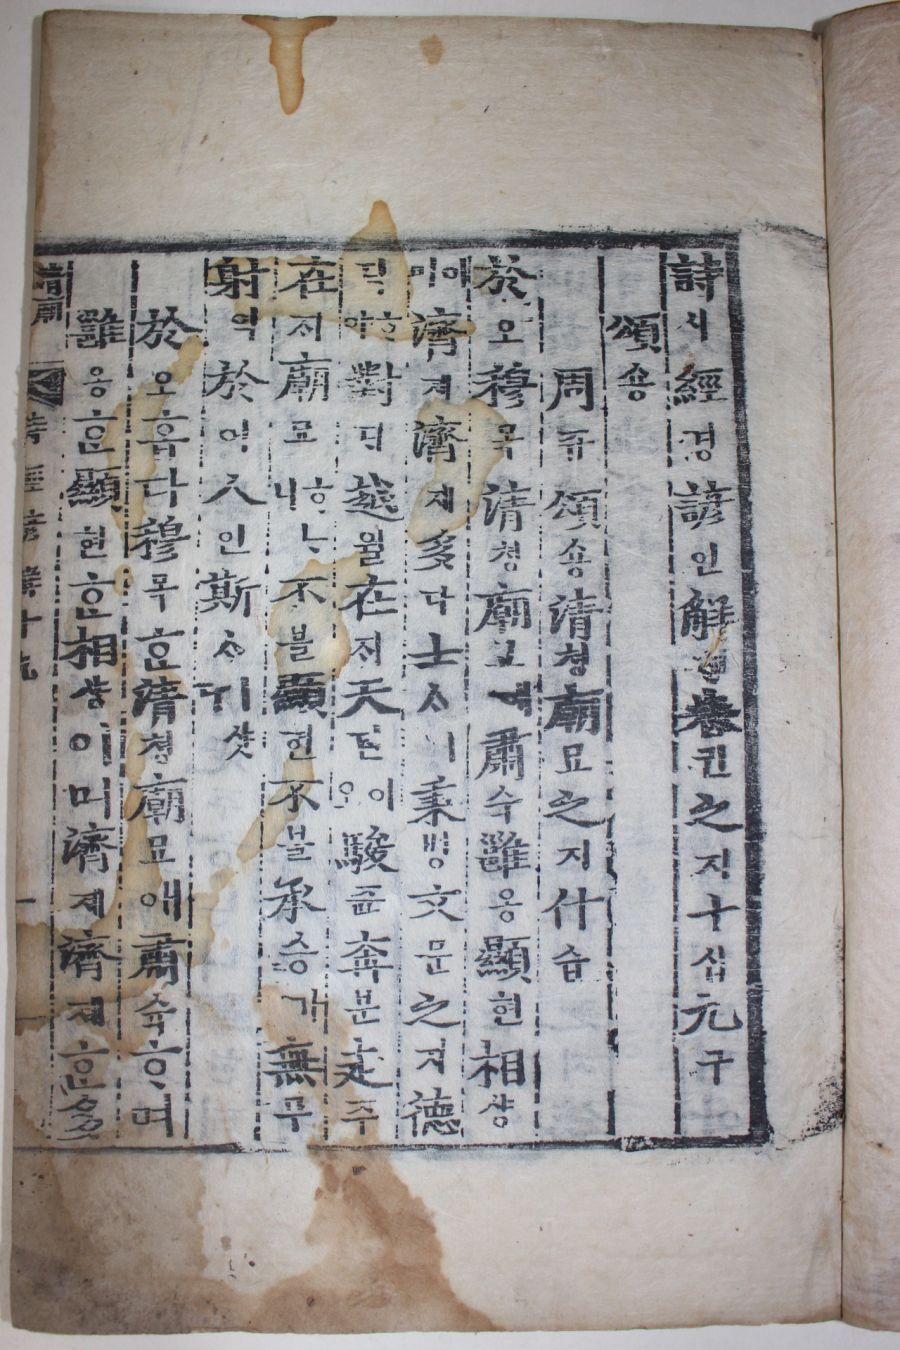 詩시經경諺언解ᄒᆡ卷권之지十십九구
頌숑
周쥬頌숑淸쳥廟묘之지什습
於오穆목淸쳥廟묘애肅슉雝옹顯현相샹
이며濟졔濟졔多다士ᄉᆞㅣ秉병文문之지德
덕ᄒᆞ야對ᄃᆡ越월在ᄌᆡ天텬이오駿쥰奔분走주
在ᄌᆡ廟묘ᄒᆞᄂᆞ니不블顯현不블承승가無무
射역於어人인斯ᄉᆞ샷다
於오홉다穆목ᄒᆞᆫ淸쳥廟묘애肅슉ᄒᆞ며
雝옹ᄒᆞᆫ顯현ᄒᆞᆫ相샹이며濟졔濟졔ᄒᆞᆫ多
淸廟 詩經諺解十九 一